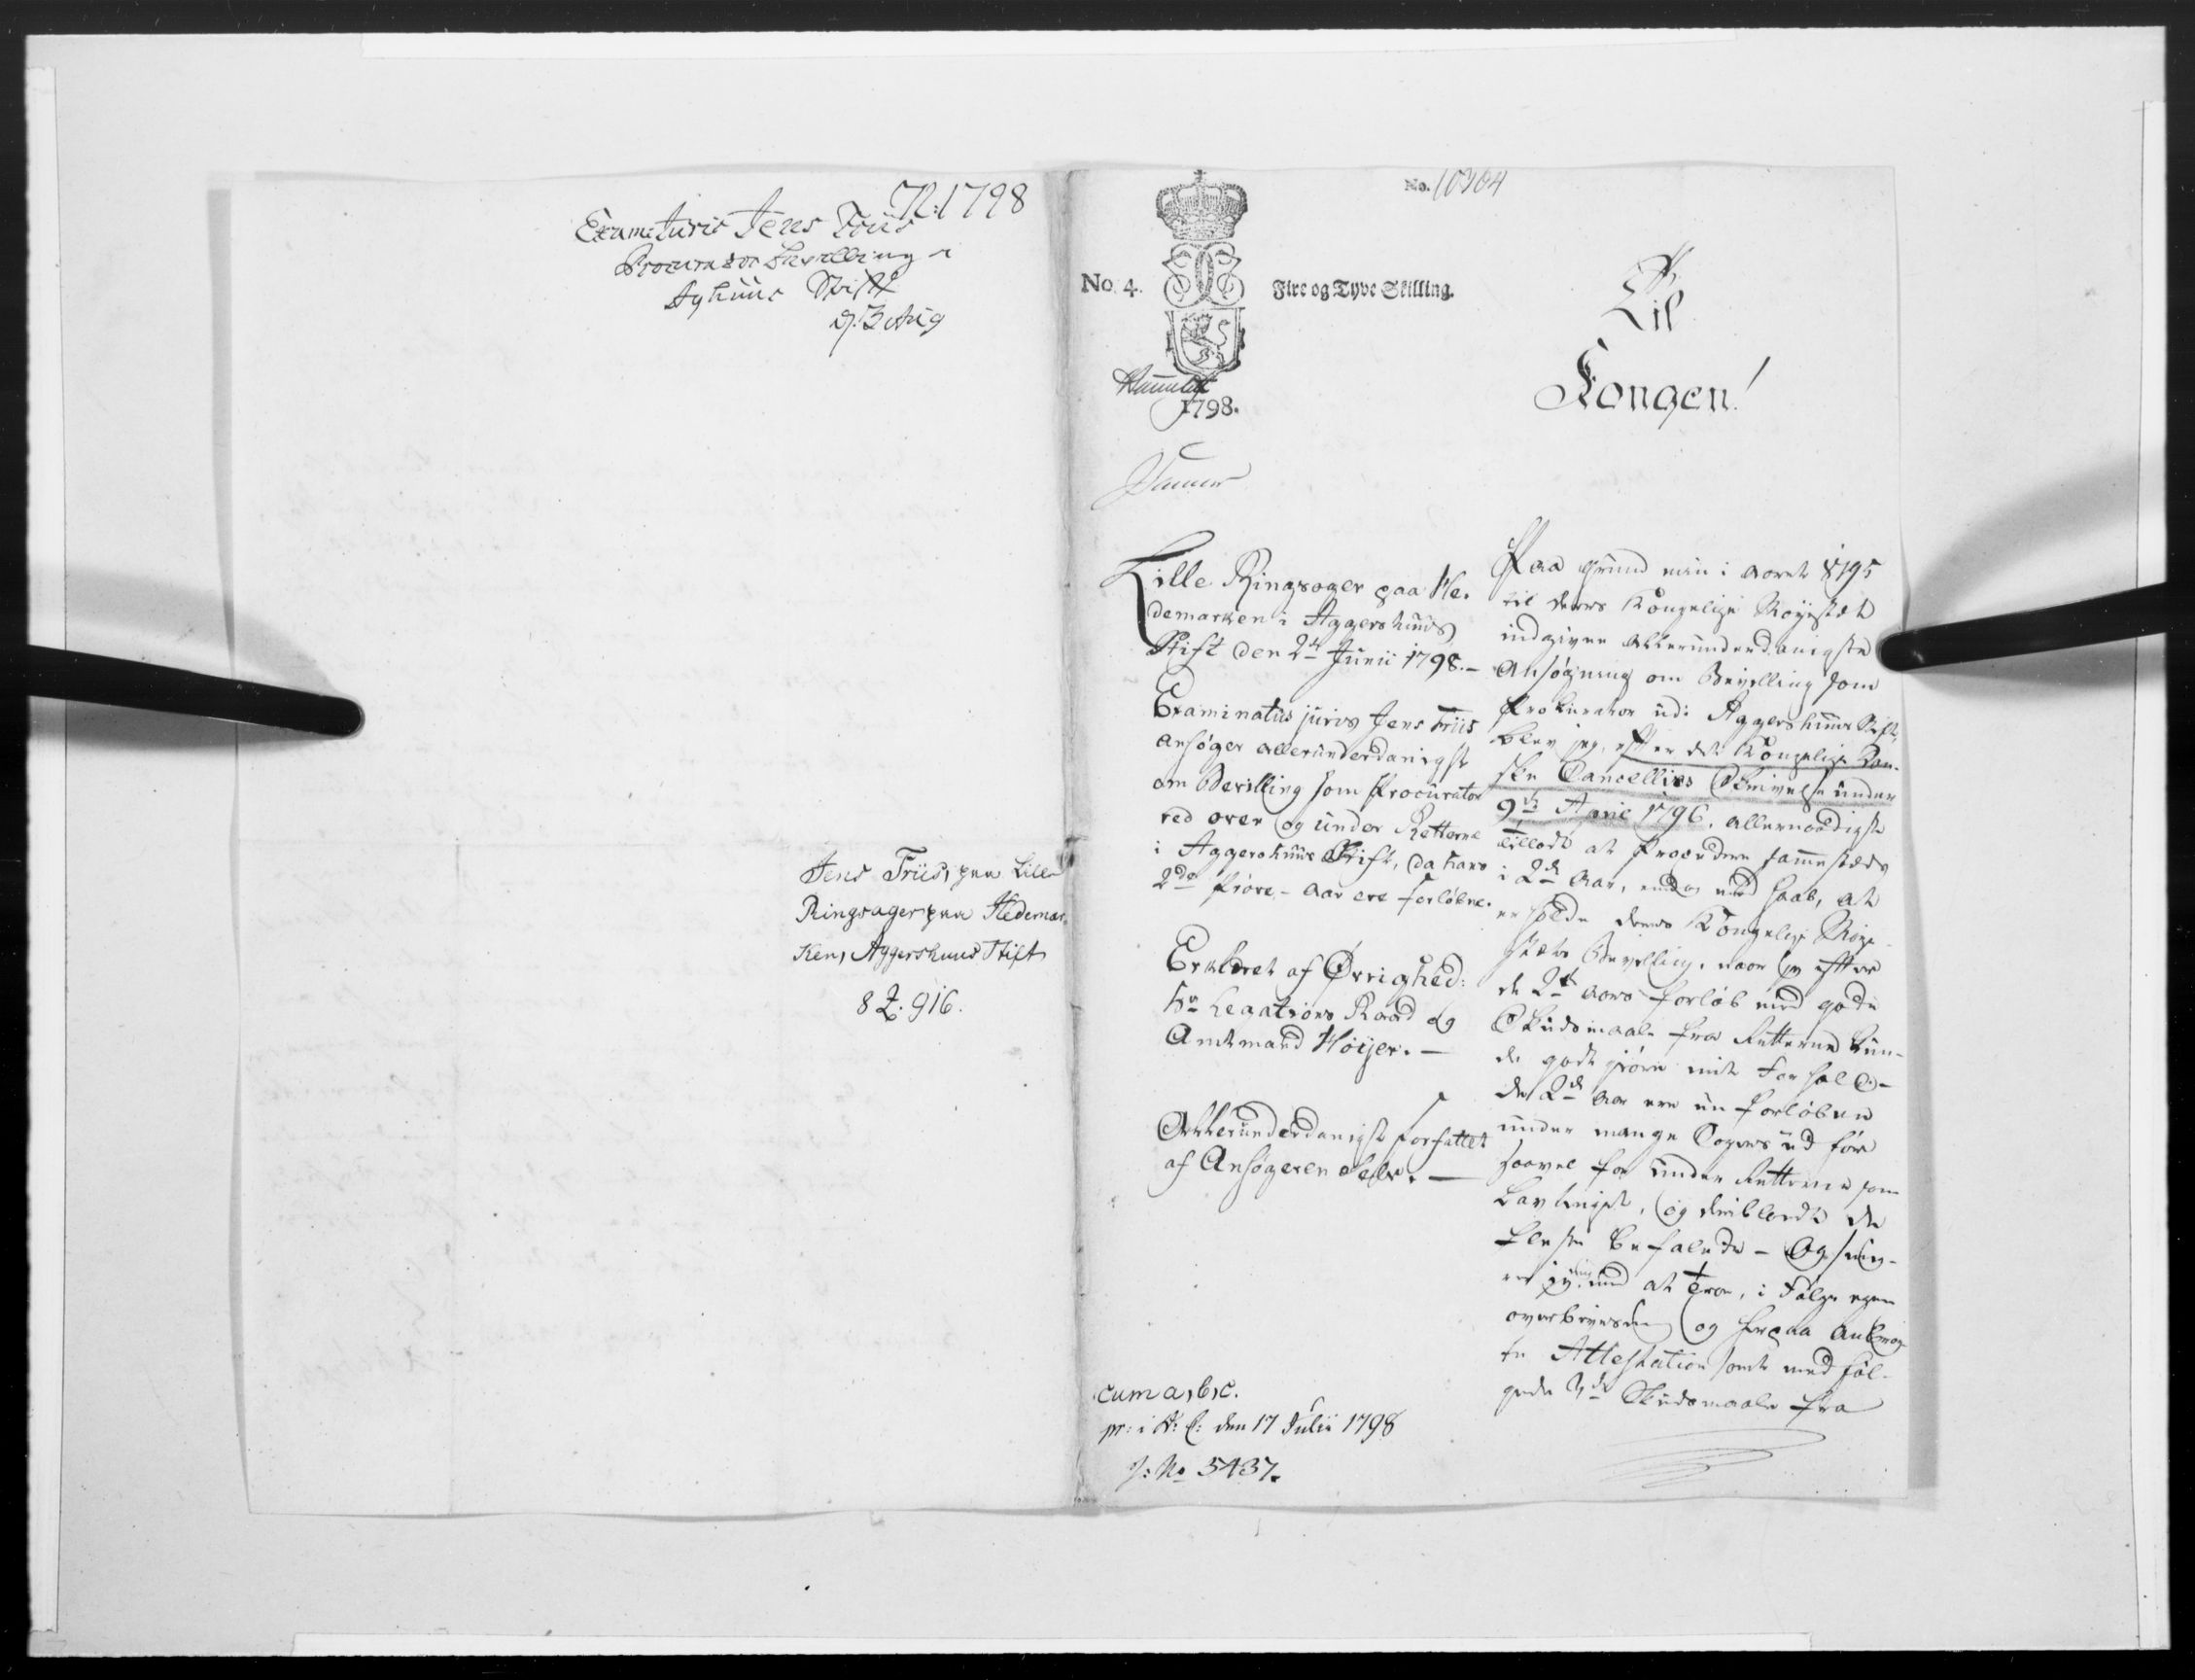 N: 1798
Exam: Juris Jens Friis
Procurator bevilling i
Aghuus Stift
d. 3 Aug
Jens Friis, paa Lille
Ringsager paa Hedemar-
ken, Aggershuus Stift
8 916.
No. 10304
No. 4.
Fire og Tyve Skilling.
1798.
Til
Kongen!
Lille Ringsager paa He-
demarken i Aggershuus
Stift den 2de Junii 1798.-
Examinatus juris Jens Friis
ansøger allerunderdanigst
om Bevilling som Procurator
ved over og under Retterne
i Aggershuus Stift, da hans
2de Prøve-aar ere forløbne.
Erklæret af Øvrighed:
Hr Legations Raad og
Amtmand Hoijer.-
Allerunderdanigst forfattet
af Ansøgeren selv.-
cum a, b, c.
pr: i D: C: den 17 Julii 1798
J: No 3437.
Paa Grund min i aaret 1795
til deres Kongelige Mayestæt
indgivne allerunderdanigste
Ansøgning om Bevilling som
Prokurator udi Aggershuus Stift,
blev jeg, efter det Kongelige Dan-
ske Cancellies Skrivelse under
9de April 1796, allernaadigst
tilladt at Procedere sammesteds
i 2de Aar, endog med Haab, at
erholde deres Kongelige Maye-
stæts Bevilling, naar jeg efter
de 2de aars forløb med gode
Skudsmaale fra Retterne kun-
de godtgiøre mit Forhold-
De 2de Aar ere nu forløbne
under mange Sagers udføre
saavel for under Retterne som
Lavtinget, og deriblandt de
fleste befalede - Og
at troe, i Følge egen
overbeviisning og herpaa
Attestation samt med føl-
gende 3de Skudsmaale fra